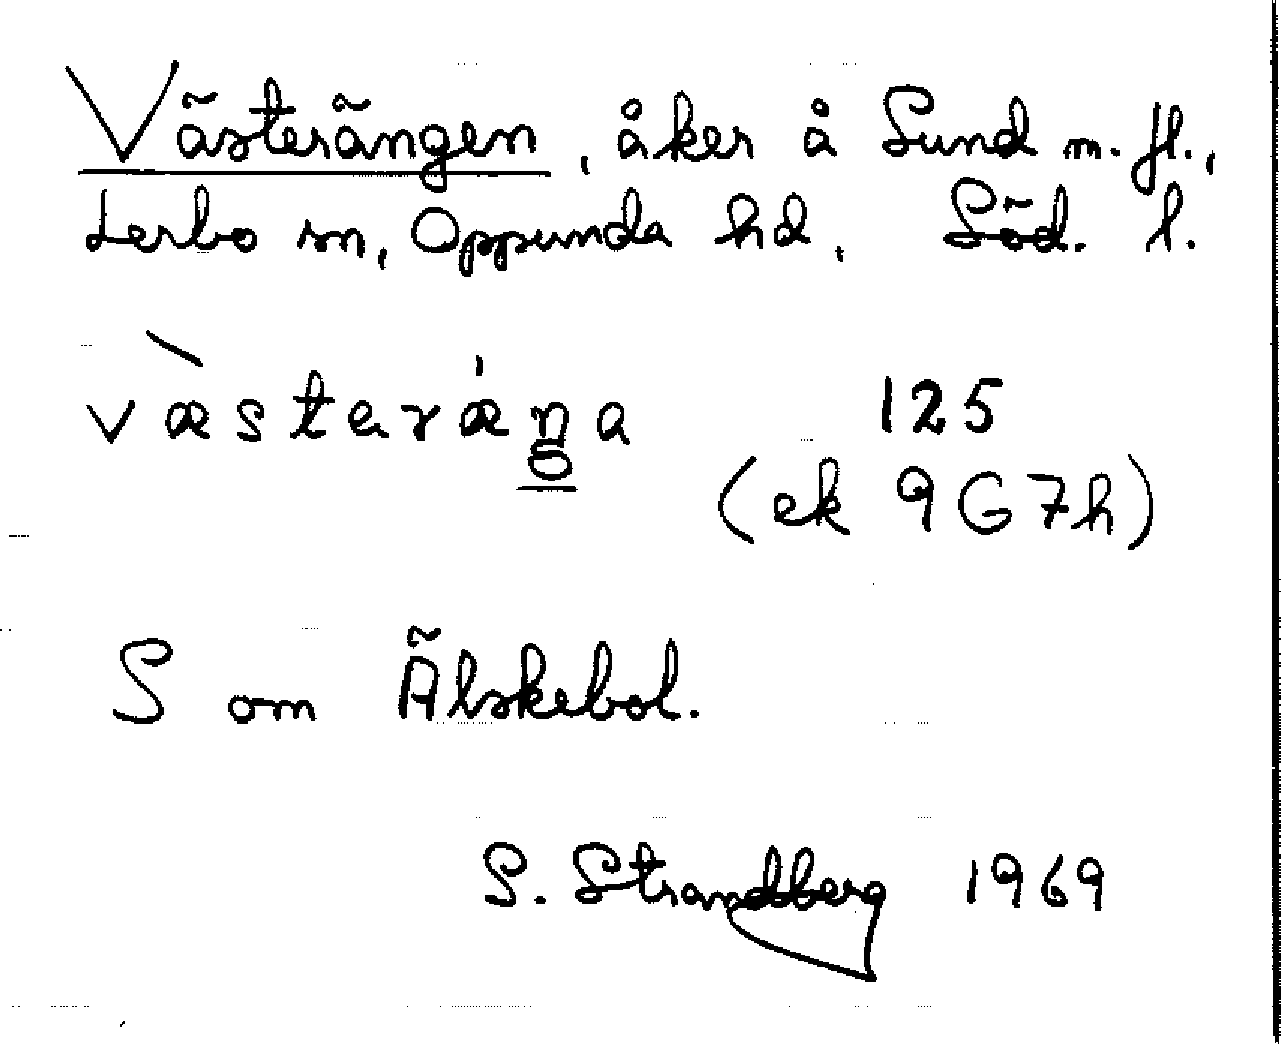 Västerängen, åker å Sund m.fl.,
Lerbo sn, Oppunda hd, Söd. l.
125
(ek 9G7h)
S om Älskebol.
S. Strandberg 1969